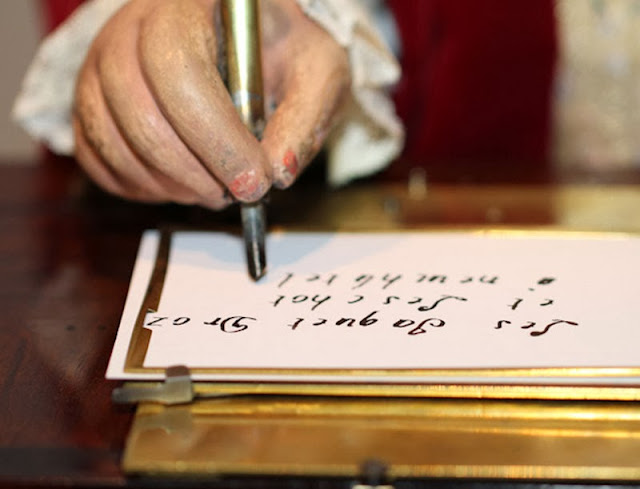 Les Jaquet Droz
et Leschot
à neuchâtel